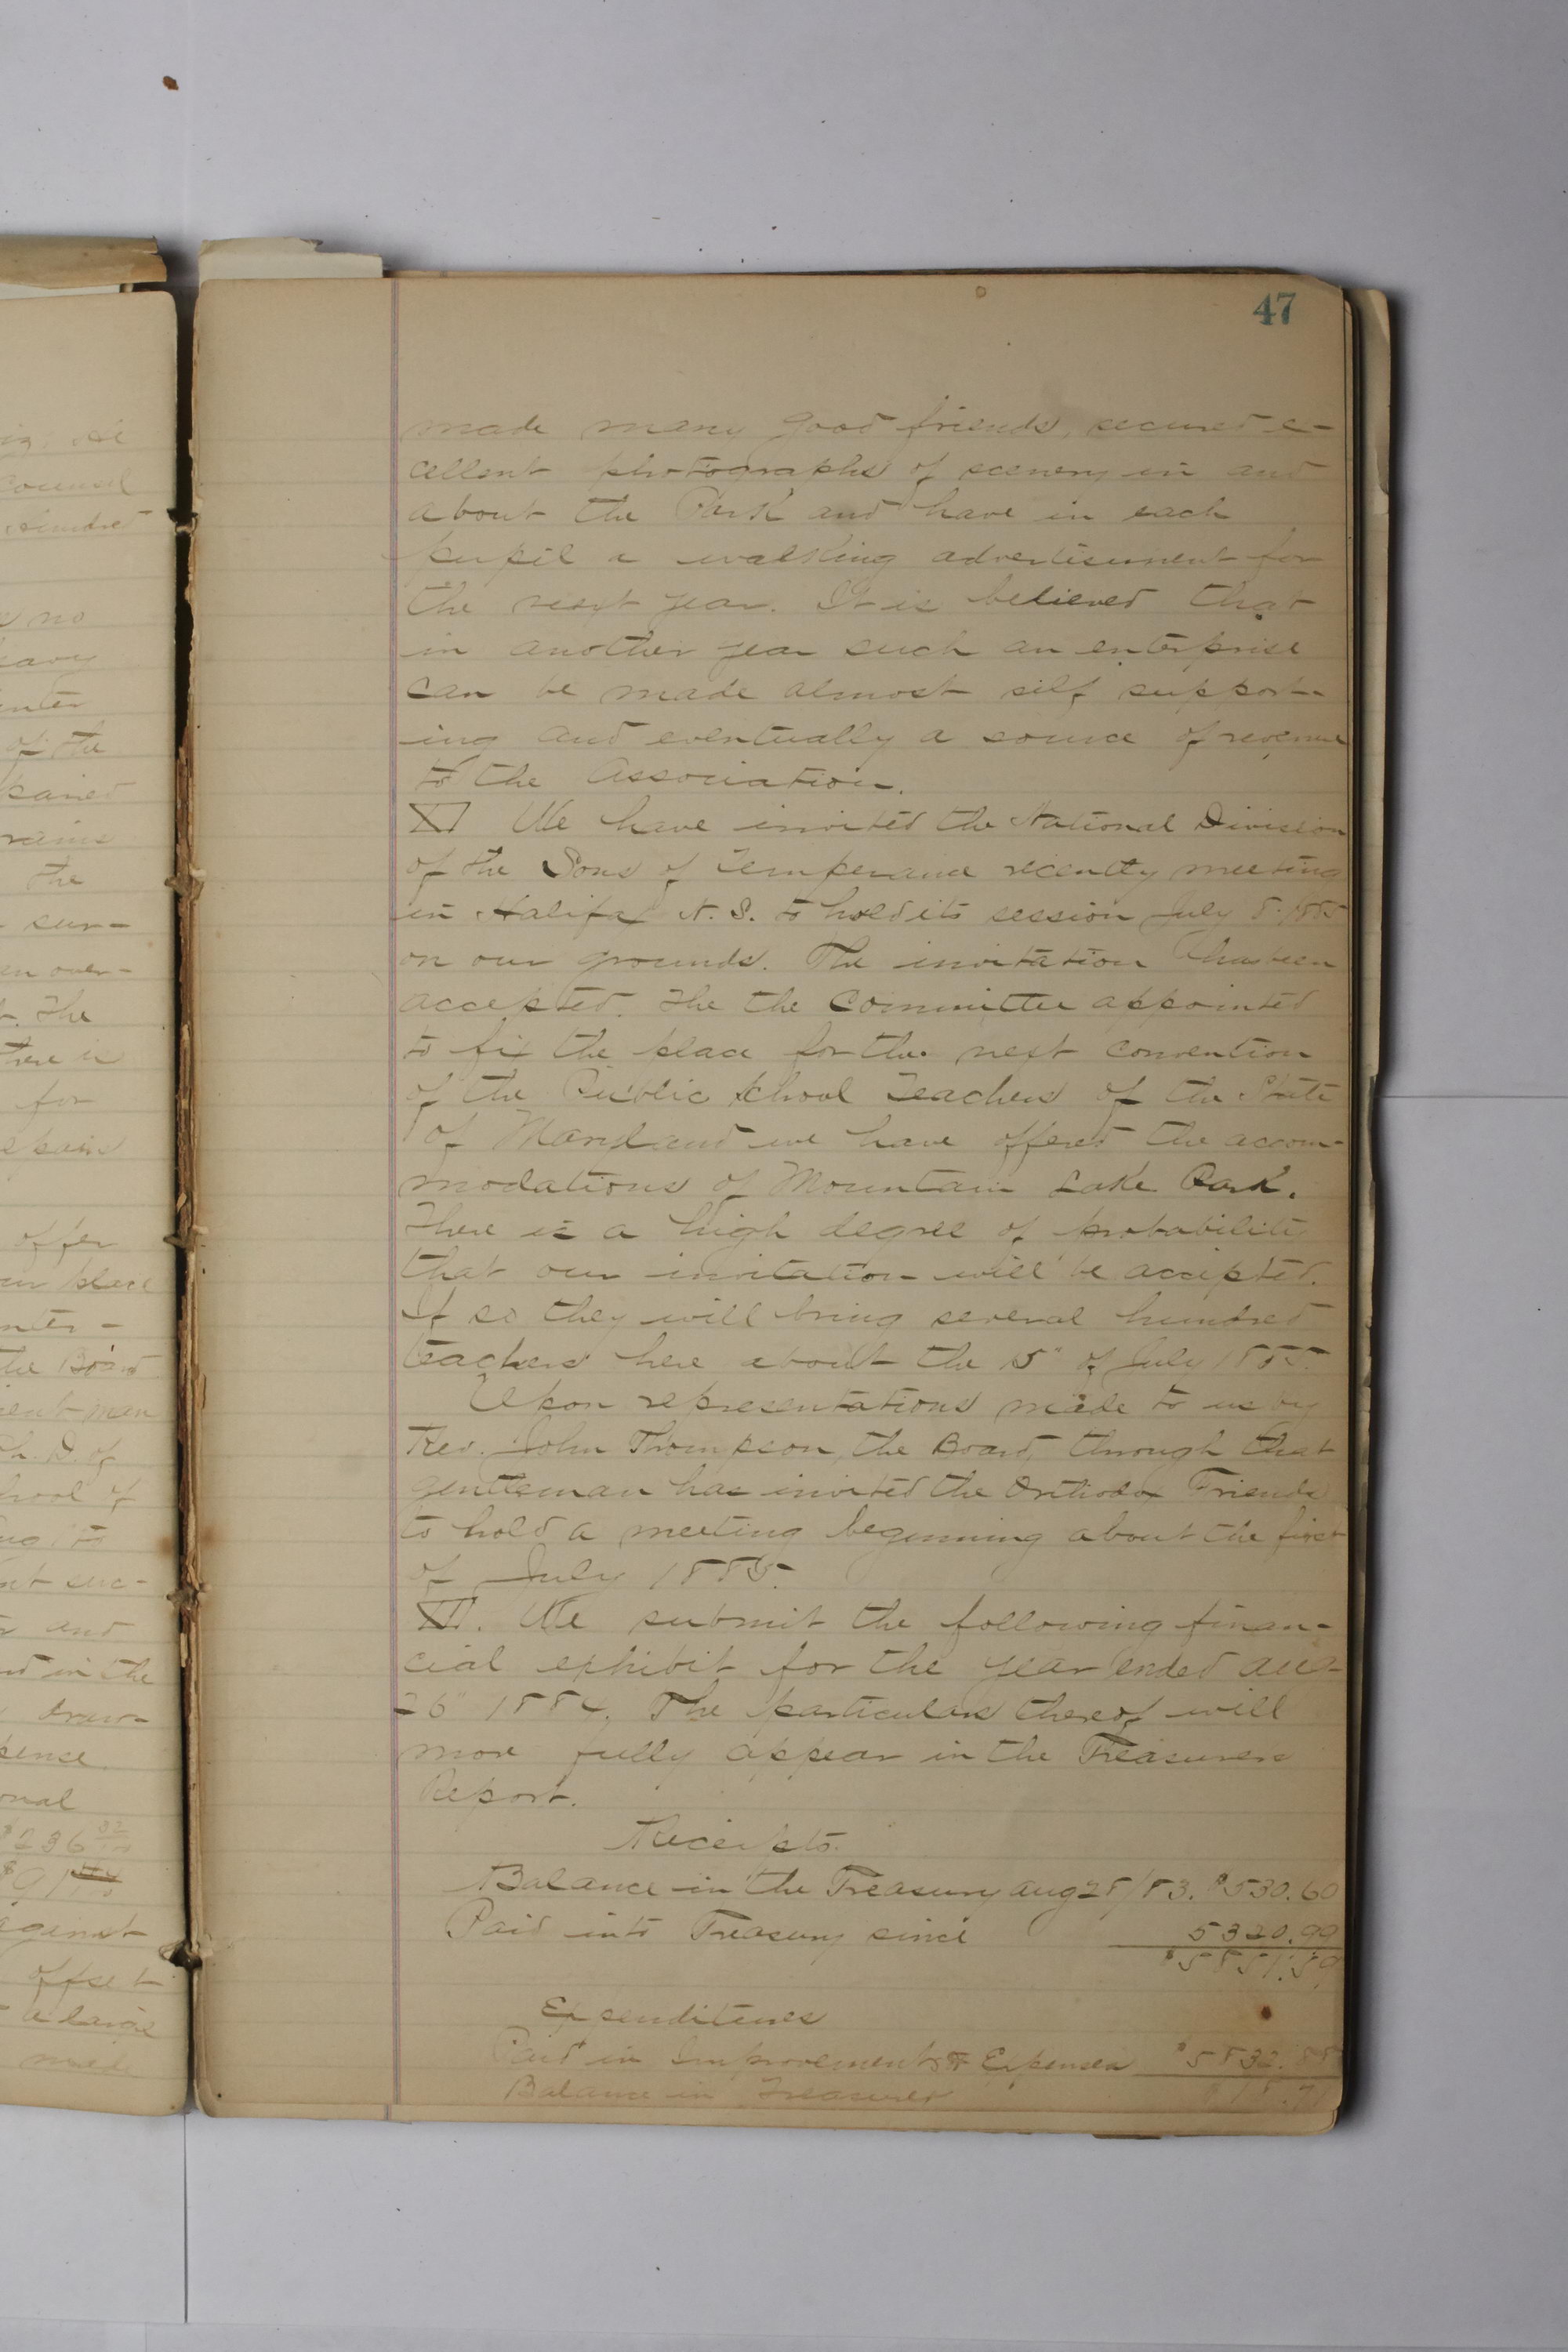 47
made many good friends, secured e-
cellent photographs of scenery in and
about the Park and have in each
pupil a walking advertisement for
the next year. It is believed that
in another year such an enterprise
can be made almost self support-
ing and eventually a source of revenue
to the Association.
XI We have invited the National Division
of the Sons of Temperance recently meeting
in Halifax N. S. to hold its session July 8. 1885
on our grounds. The invitation has been
accepted. The the Committee appointed
to fix the place for the next convention
of the Public School Teachers of the State
of Maryland we have offered the accom-
modations of Mountain Lake Park.
There is a high degree of probability
that our invitation will be accepted.
If so they will bring several hundred
teachers here about the 15" of July 1885.
Upon representations made to us by
Rev. John Thompson, the Board, through that
gentleman has invited the Orthodox Friends
to hold a meeting beginning about the first
of July 1885.
XII. We submit the following finan-
cial exhibit for the year ended Aug
26" 1884. The particulars thereof will
more fully appear in the Treasurers
Report.
Receipts.
Balance in the Treasury Aug 28/83. $530.60
Paid into Treasury since 5320.99
$5851.59
Expenditures
Paid in Improvements & Expenses $5832.88
Balance in Treasury $18.71